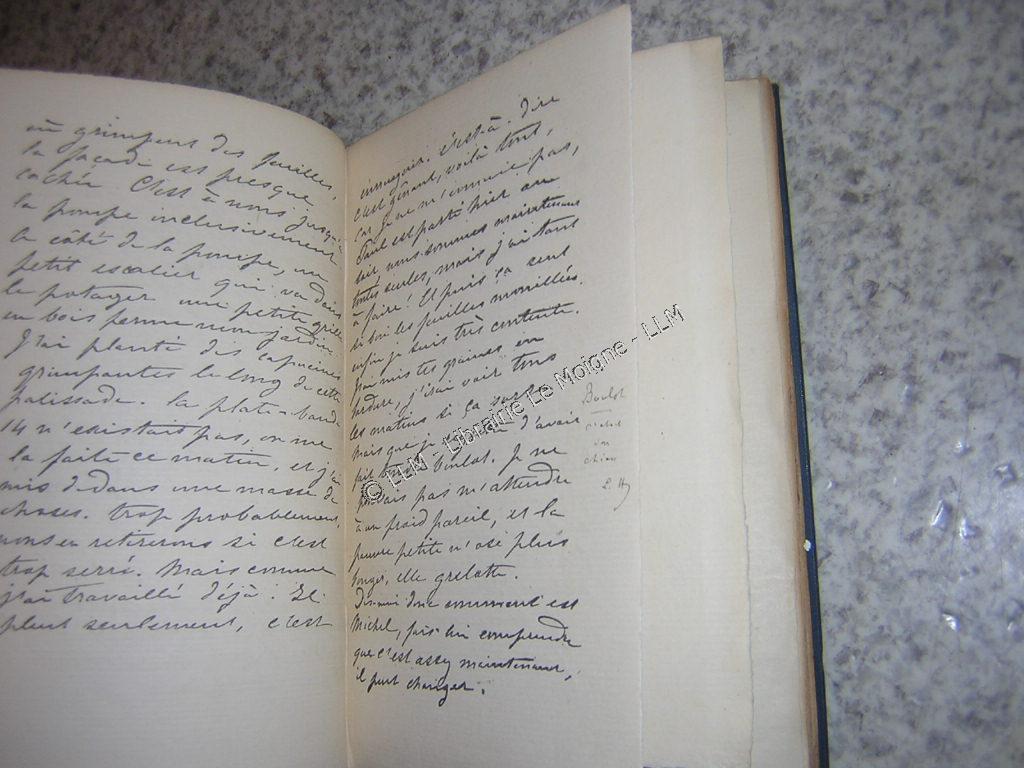 où grimpent des feuilles,
la façade est presque
cachée. C'est à nous jusqu'à
la pompe inclusivement
a côté de la pompe, un
petit escalier qui va dans
le potager une petite grille
en bois ferme mon jardin.
J'ai planté des capucines
grimpantes le long de cette
palissade. la plate-bande
14 n'existait pas, on me
la faite ce matin, et j'ai
mis dedans une masse de
choses. trop probablement,
nous en retirerons si c'est
trop serré. Mais comme
j'ai travaillé déjà. Il
pleut seulement, c'est
ennuyeux. c'est à dire
c'est gênant, voilà tout,
car je ne m'ennuie pas,
Paul est parti hier au
soir, nous sommes maintenant
toutes seules, mais j'ai tant
à faire! Et puis ça sent
si bon les feuilles mouillées.
enfin je suis très contente.
J'ai mis tes graines en
bordure, j'irai voir tous
les matins si ça sort.
mais que je d'avoir
fait Boulot. Je ne
pouvais pas m'attendre
à un froid pareil, et la
pauvre petite n'ose plus
bouger, elle grelotte.
Dis-moi donc comment est
Michel, fais lui comprendre
que c'est assez maintenant,
il peut changer.
Boulot
c'était
un
chien
L. H
© LLM - Librairie Le Moigne - LLM